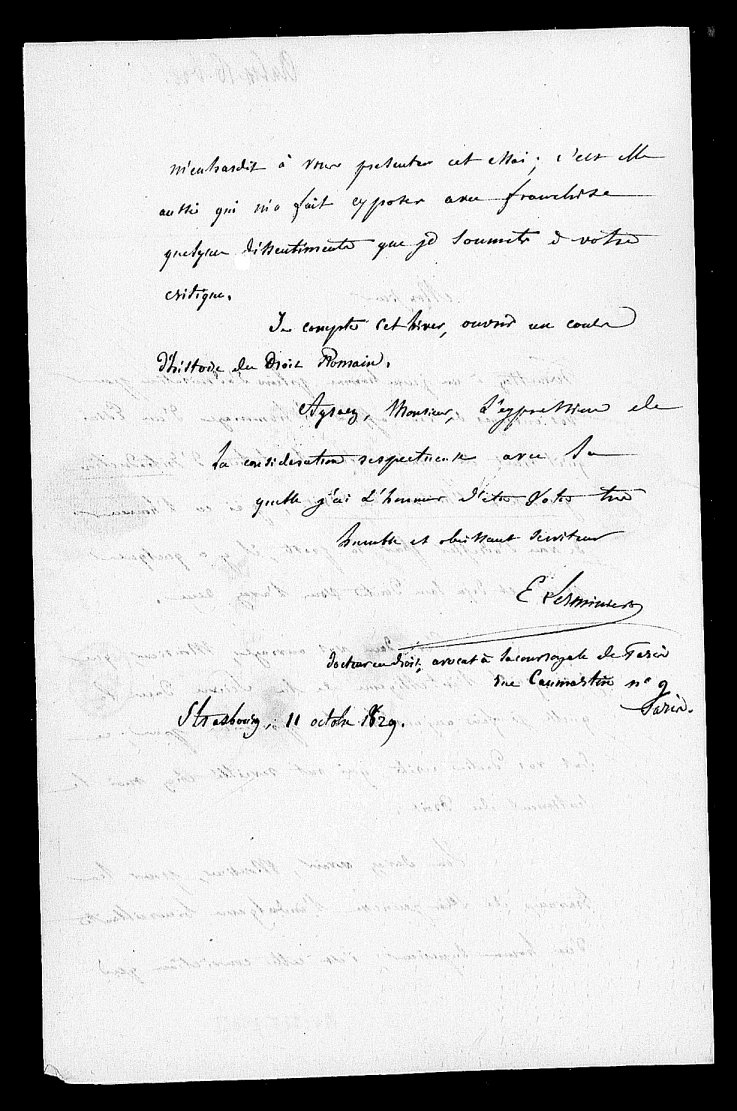 m'enhardit à vous présenter cet essai; c'est elle
aussi qui m'a fait exposer avec franchise
quelques dissentiments que je soumets à votre
critique.
Je compte cet hiver, ouvrir un cours
d'histoire du Droit Romain.
Agréez, Monsieur, l'expression de
la considération respectueuse avec la
quelle j'ai l'honneur d'être Votre très
humble et obéissant serviteur
E Lerminier
docteur en droit, avocat à la cour royale de Paris
rue Caumartin n° 9
Paris.
Strasbourg, 11 octobre 1829.